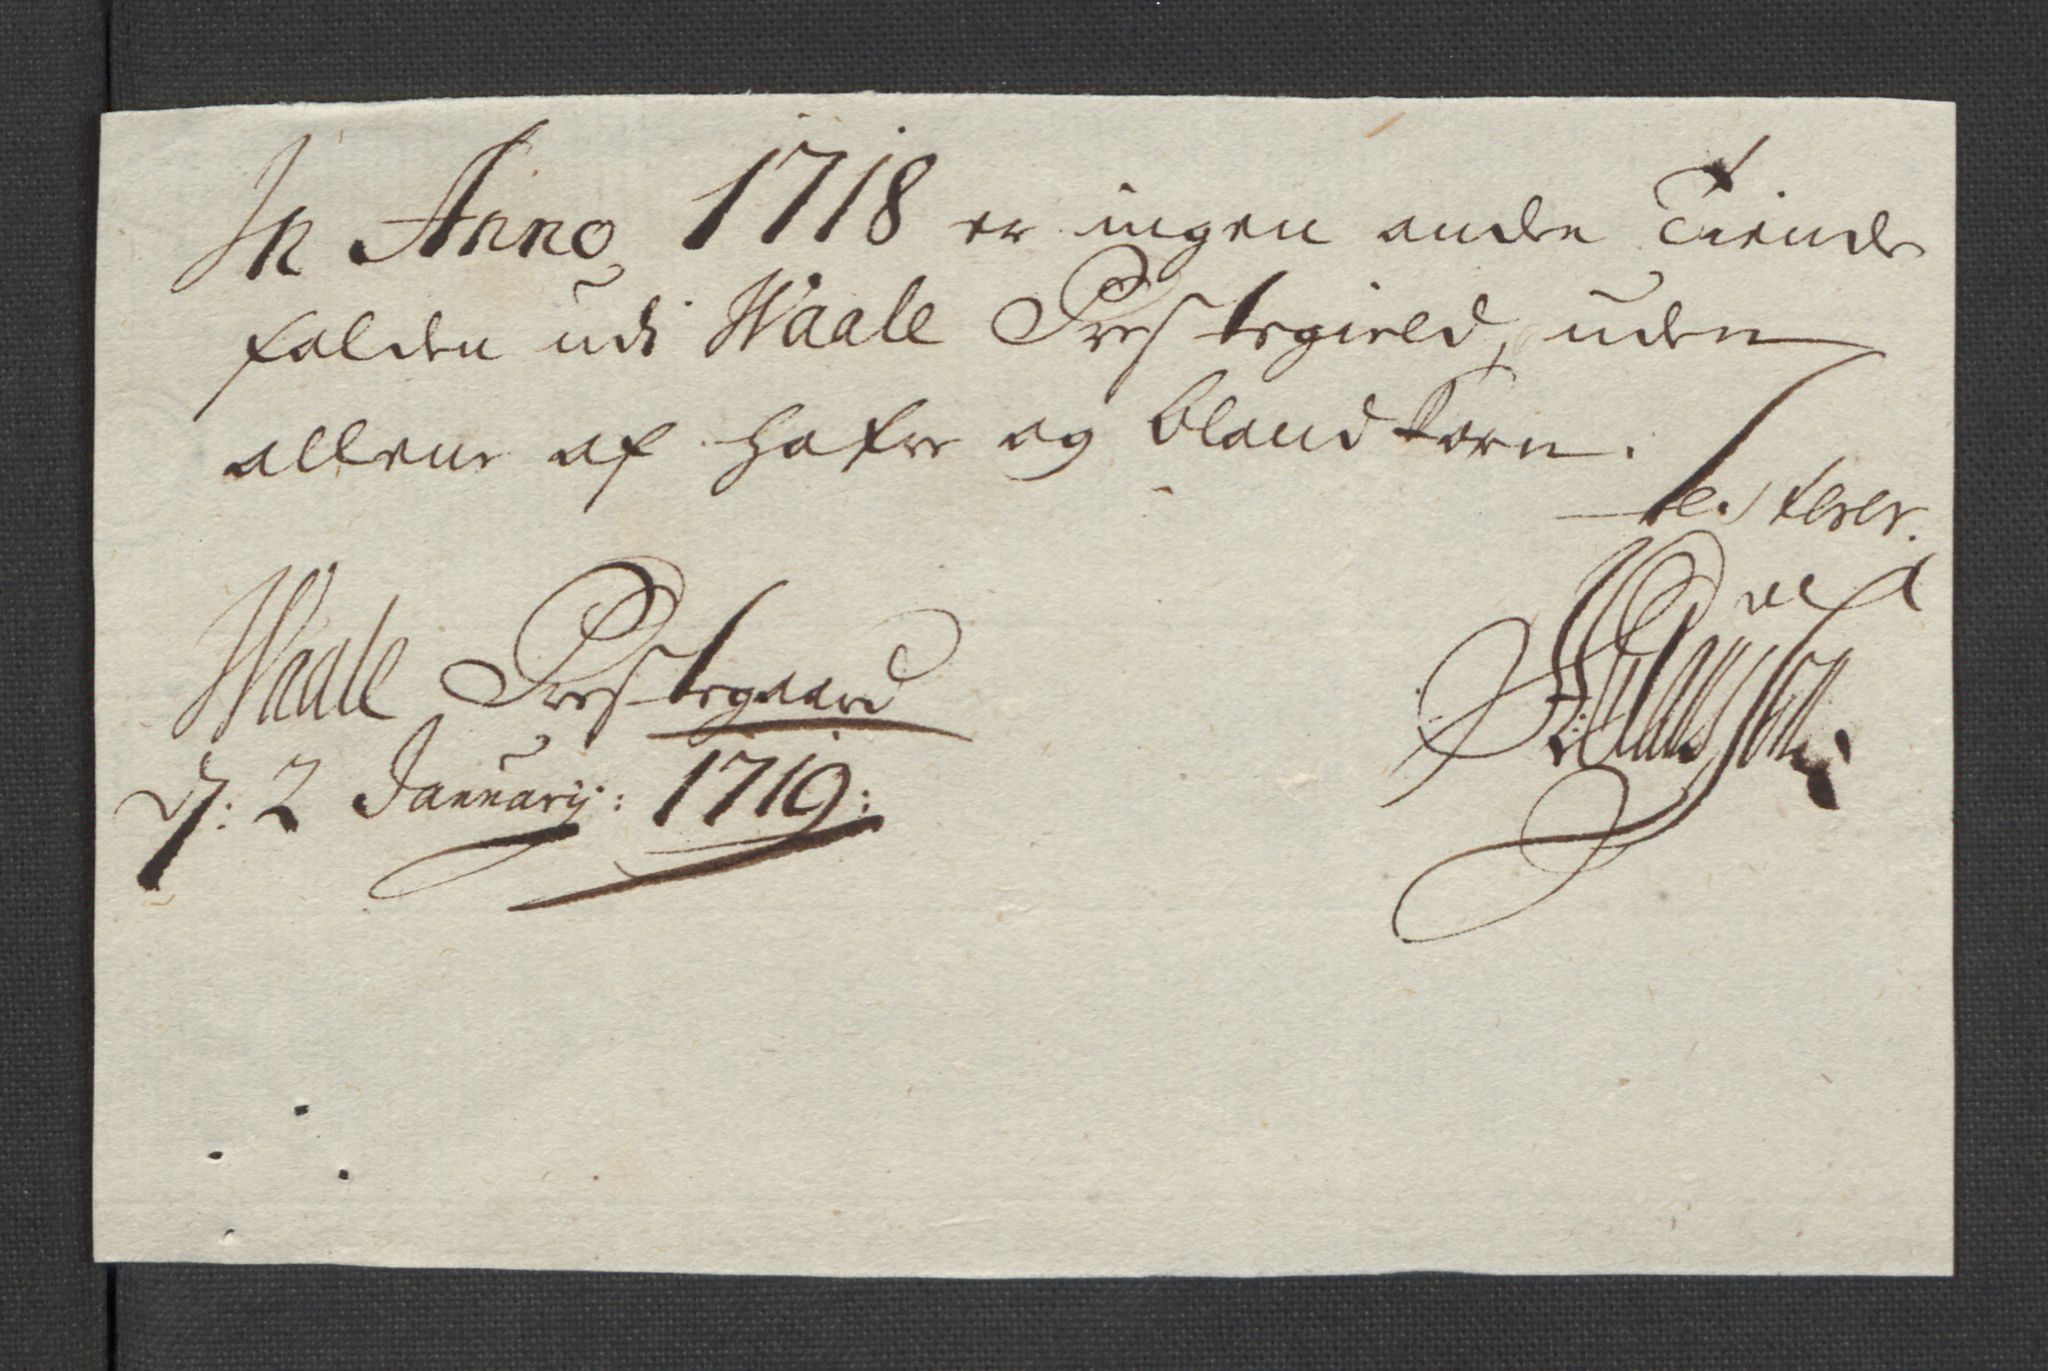 In Anno 1718 er ingen anden Tiende
falden udi Waale Prestegield, uden
allene af hafre og bland korn.
testerer
Waale Prestegaard
d: 2 Januarij: 1719: